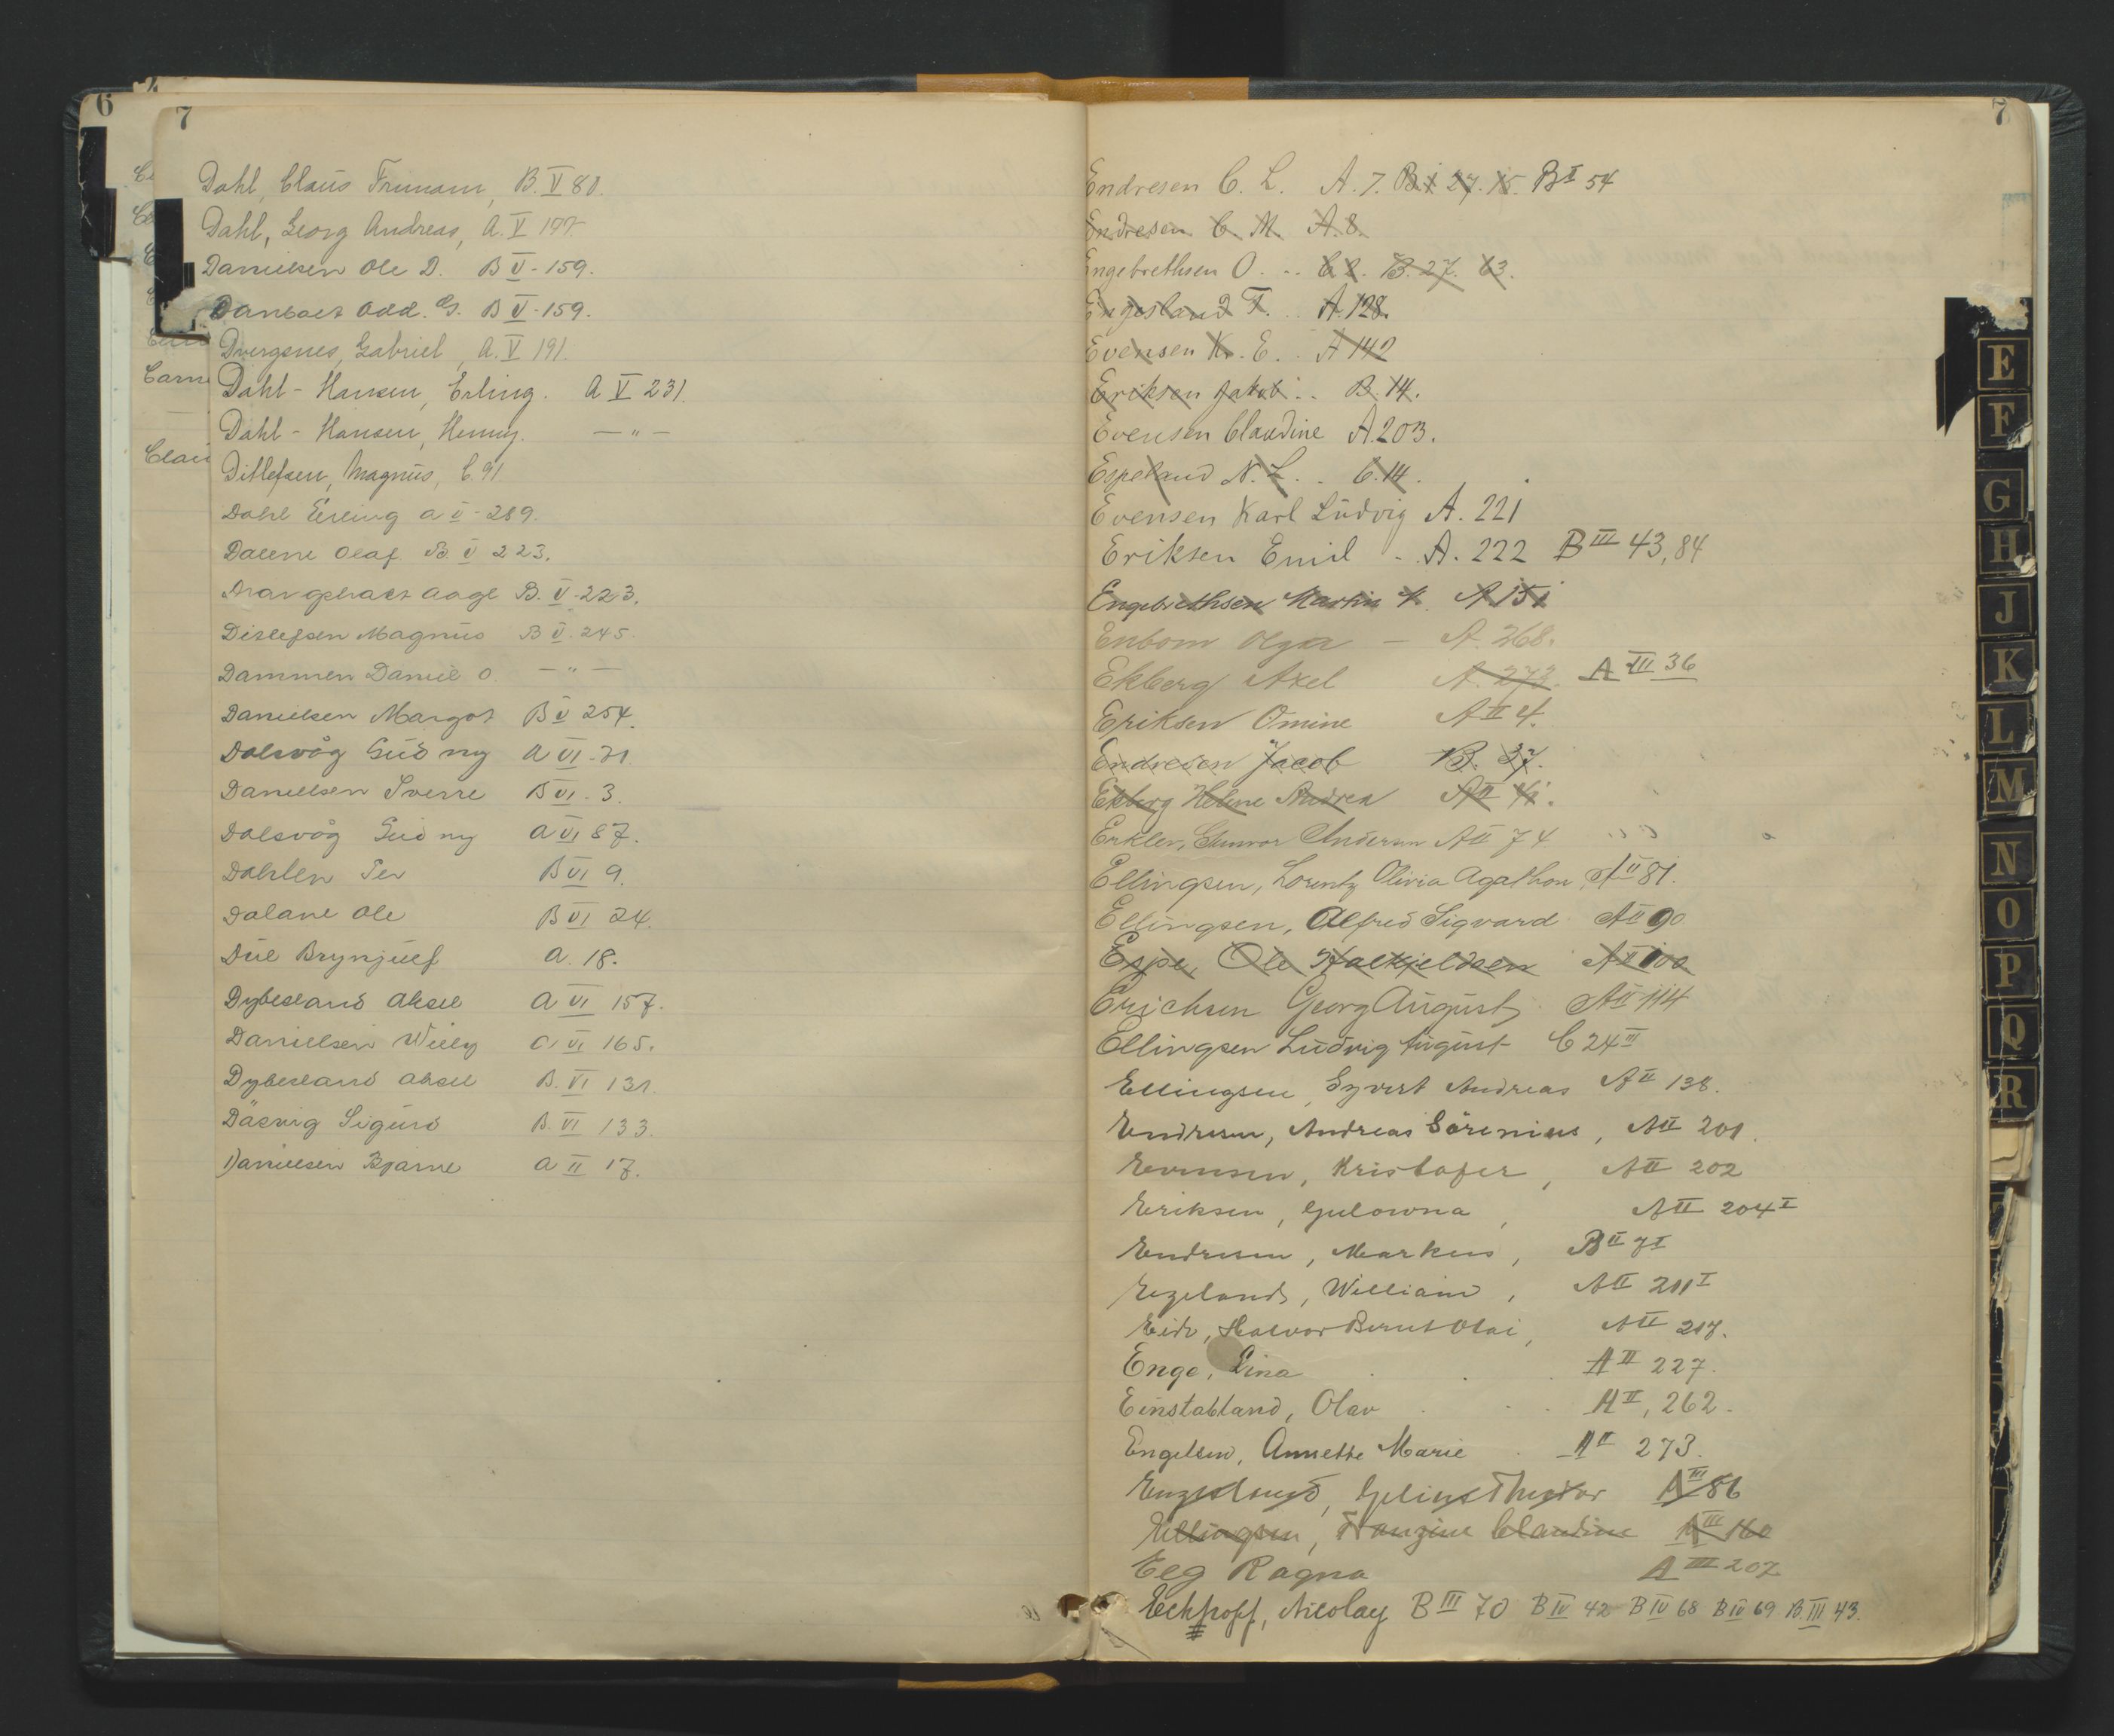 6
7
Dahl, Claus Trumann, B. V 80.
Dahl, Georg Andreas, A. V 177
Danielsen Ole D. B V - 159.
Danbolt Odd. G. B V - 159.
Dvergsnes, Gabriel, A. V 191.
Dahl - Hansen, Erling. A V 231.
Dahl - Hansen, Henny. — " —
Ditlefsen, Magnus, C 91
Dahl Erling A V - 289.
Dalene Olaf B V 223.
Aage B. V - 223.
Ditlefsen Magnus B V. 245.
Dammen Daniel O. — " —
Danielsen Margot B V 254.
Dalsvåg Gudny A VI - 21.
Danielsen Sverre B VI. 3.
Dalsvåg Gudny A VI 87.
Dahlen Per B VI 9.
Dalane Ole B VI 24.
Due Brynjulf A. 18.
Dybesland Aksel A VI 157.
Danielsen Willy A VI 165.
Dybesland Aksel B. VI 131.
Dåsvig Sigurd B. VI 133.
Danielsen Bjarne A II 17.
7
Endresen C. L. A. 7. B.1 27. 15. B I 54
Endresen C. M. A. 8.
Engebrethsen O. .. C 2. B. 27. 63.
Engesland F. .. A. 128.
Evensen Kr. E. . A 142
Eriksen Jakob .. B. 14.
Evensen Claudine A. 203.
Espeland N. L. .. C. 14.
Evensen Karl Ludvig A. 221
Eriksen Emil - A. 222 B III 43, 84
Engebrethsen Martin K. A 151
Enbom Olga — A. 268.
Ekberg Axel A. 272. A III 36
Eriksen Omine A II 4.
Endresen Jacob B. 37.
Ekberg Helene Andrea A II 41.
Enkler, Gunvor Andersen A II 74
Ellingsen, Lorentz Olivia Agathon A II 81.
Ellingsen, Alfred Sigvard A II 90
Espe, Ole Halkjeldsen A II 100
Erichsen Georg August A II 114
Ellingsen Ludvig August C 24 III
Ellingsen, Syvert Andreas A II 138.
Endresen, Andreas Sörenius, A II 201.
Evensen, Kristofer, A II 202
Eriksen, Gulowna, A II 204 I
Endresen, Markus, B II 7 I
Egeland, William, A II 211 I
Eide, Halvor Bernt Olai, A II 217.
Enge, Lina . . . A II 227.
Einstabland, Olav . . . A II, 262.
Engelsen, Annette Marie . A II 273.
Engeslund, Gelius Theodor A III 86
Ellingsen, Franzine Claudine A III 160
Eeg Ragna A III 207
Eckhoff, Nicolay B III 70 B IV 42 B IV 68 B IV 69 B. III 43.
E
F
G
H
J
K
L
M
N
O
P
Q
R